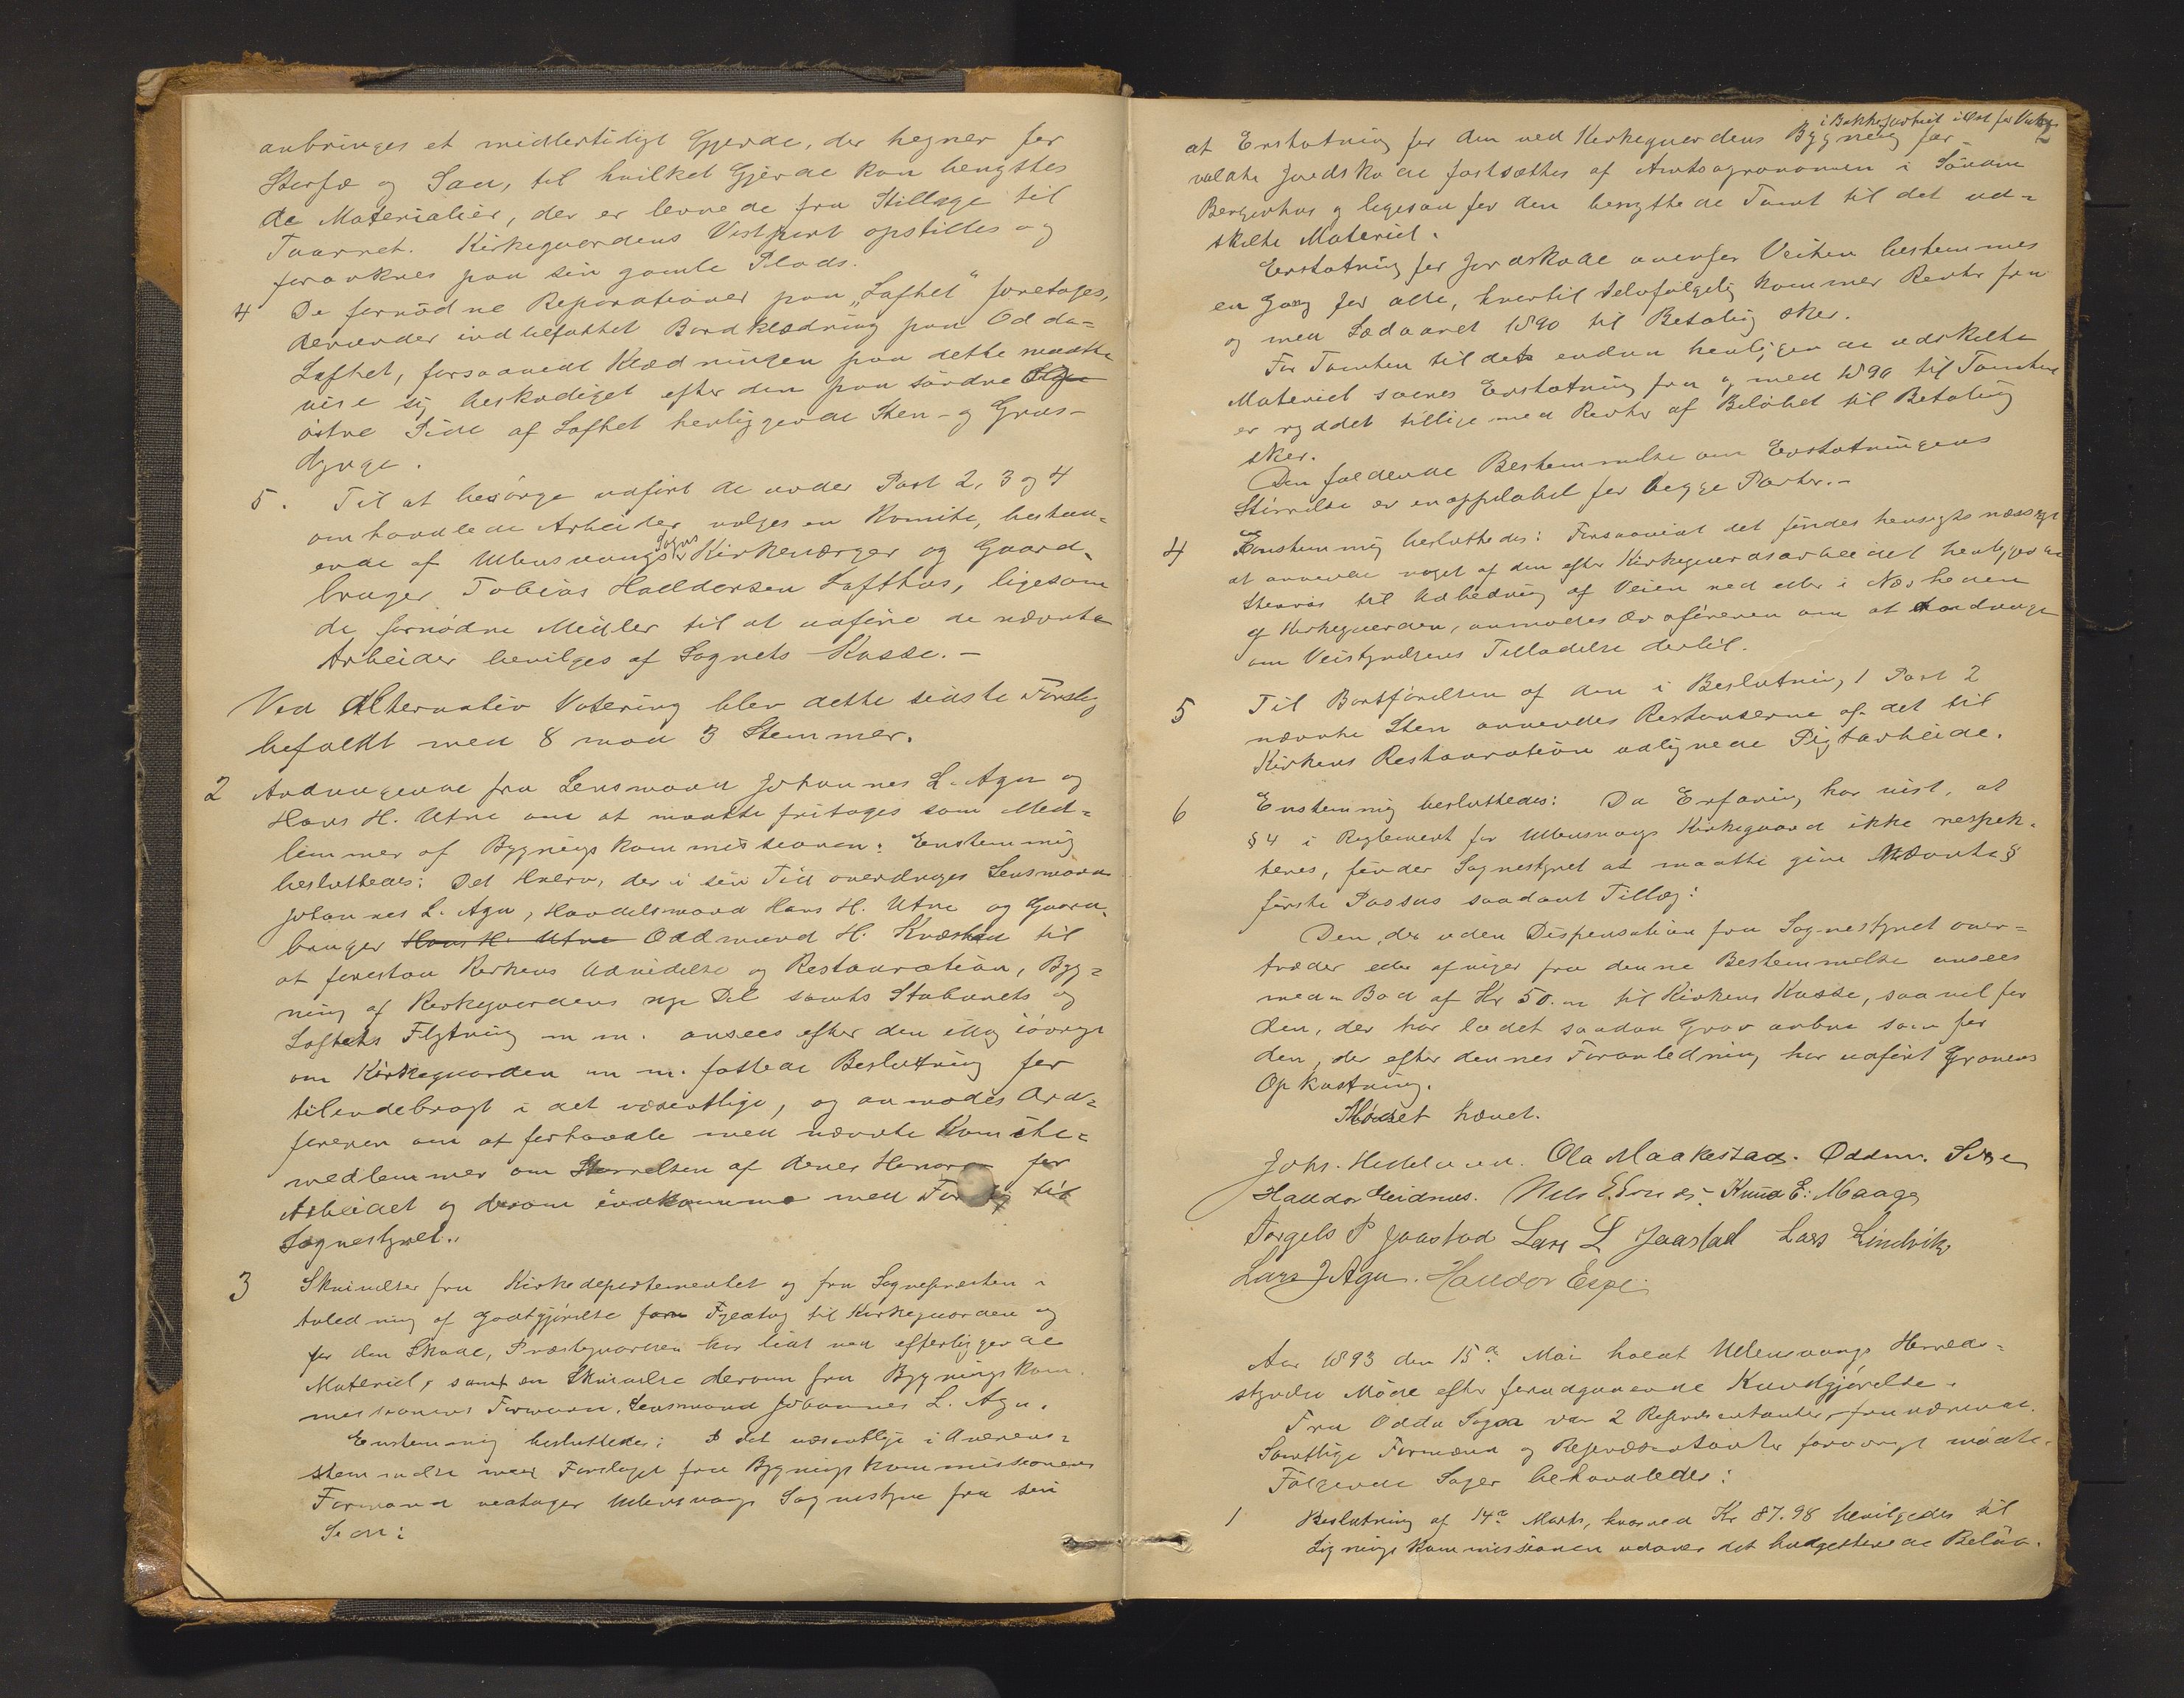 anbringes et midlertidigt Gjerde, der hegner for
Storfæ og Sau, til hvilket Gjerde kan benyttes
de Materialier, der er levnede fra Stillage til
Taarnet. Kirkegaardens Vestport opstilles og
forankres paa sin gamle Plads.
4 De fornødne Reparationer paa "Lofthet" foretages,
derunder indbefattet Bordklædning paa Odda-
Lofthet, forsaavidt Klædningen paa dette maatte
vise sig beskadiget efter den paa søndre
østre Side af Lofthet henliggende Sten- og Grus-
dynge.
5. Til at besørge udført de under Post 2, 3 og 4
omhandlede Arbeider vælges en Komite, bestaa-
ende af Ullensvangs Sogns Kirkeværger og Gaard-
bruger Tobias Halldorsen Lofthus, ligesom
de fornødne Midler til at udføre de nævnte
Arbeider bevilges af Sognets Kasse. -
Ved alternativ Votering blev dette sidste Forslag
befaldt med 8 mod 3 Stemmer.
2 Andragende fra Lensmand Johannes L. Aga og
Hans H. Utne om at maatte fritages som Med-
lemmer af Bygningskommissionen: Enstemmig
besluttedes: Det Hverv, der i sin Tid overdroges Lensmand
Johannes L. Aga, Handelsmand Hans H. Utne og Gaard-
bruger Hans H. Utne Oddmund H. Kvæstad til
at forestaa Kirkens Udvidelse og Restauration, Byg-
ning af Kirkegaardens nye Del samt Staburets og
Loftets Flytning m m. ansees efter den idag iøvrigt
om Kirkegaarden m m. fattede Beslutning for
tilendebragt i det væsentlige, og anmodes Ord-
føreren om at forhandle med nævnte Komite-
medlemmer om Størrelsen af deres Honorar for
Arbeidet og derom indkomme med Forslag til
Sognestyret.
3 Skrivelser fra Kirkedepartementet og fra Sognepresten i
Anledning af Godtgjørelse for Fyldtag til Kirkegaarden og
for den Skade, Præstegaarden har lidt ved efterliggende
Materiel, samt en Skrivelse derom fra Bygningskom-
missionens Formand, Lensmand Johannes L. Aga.
Enstemmig besluttedes: I det væsentlige i Overens-
stemmelse med Forslaget fra Bygningskommissionens
Formand vedtager Ullensvangs Sognestyre fra sin
Side:
i Bakkejordet i Øst for Veien
2
at Erstatning for den ved Kirkegaardens Bygning for-
voldte Jordskade fastsættes af Amtsagronomen i Søndre
Bergenhus og ligesaa for den benyttede Tomt til det ud-
skilte Materiel.
Erstatning for Jordskade ovenfor Veien bestemmes
en Gang for alle, hvortil selvfølgelig kommer Renter fra
og med Sædaaret 1890 til Betaling sker.
For Tomten til det endnu henliggende udskilte
Materiel svares Erstatning fra og med 1890 til Tomten
er ryddet tillige med Renter af Beløbet til Betaling
sker.
Den faldende Bestemmelse om Erstatningens
Størrelse er inappelabel for begge Parter. -
4 Enstemmig besluttedes: Forsaavidt det findes hensigtsmæssigt
at anvende noget af den efter Kirkegaardsarbeidet henliggende
Stenrøs til Udbedring af Veien ved eller i Nærheden
af Kirkegaarden, anmodes Ordføreren om at andrage
om Veistyrelsens Tilladelse dertil.
5 Til Bortførelsen af den i Beslutning 1 Post 2
nævnte Sten anvendes Restanserne af det til
Kirkens Restauration udlignede Pligtarbeide.
6 Enstemmig besluttedes: Da Erfaring har vist, at
§ 4 i Reglement for Ullensvangs Kirkegaard ikke respek-
teres, finder Sognestyret at maatte give Nævnte §
første Passus saadant Tillæg:
Den, der uden Dispensation fra Sognestyret over-
træder eller afviger fra denne Bestemmelse ansees
med en Bod af Kr 50.00 til Kirkens Kasse, saavel for
den, der har ladet saadan Grav aabne som for
den, der efter dennes Foranledning har udført Gravens
Opkastning.
Mødet hævet.
Johs. Ola Maakestad. Oddm.
Halldor Eidnes. Nils Knud E. Maage
Torgils P Jaastad Lars L Jaastad Lars Lindvik
Lars J Aga. Halldor Espe.
Aar 1893 den 15de Mai holdt Ullensvangs Herreds-
styrelse Møde efter forudgaaende Kundgjørelse.
Fra Odda Sogn var 2 Repræsentanter fraværende.
Samtlige Formænd og Repræsentanter forøvrigt mødte.
Følgende Sager behandledes:
1 Beslutning af 14de Marts, hvorved Kr 87.98 bevilgedes til
Ligningskommissionen udover det budgetterede Beløb.